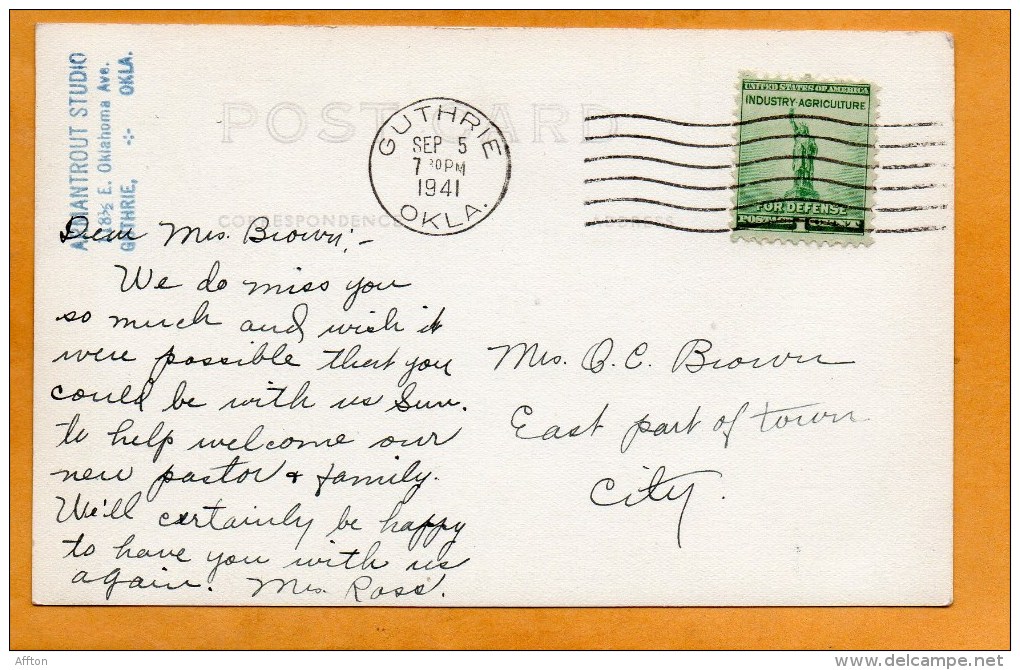 STUDIO
E. Oklahoma Ave.
GUTHRIE, OKLA.
POST CARD
GUTHRIE
SEP 5
7 30 PM
1941
OKLA.
UNITED STATES OF AMERICA
INDUSTRY·AGRICULTURE
FOR DEFENSE
CORRESPONDENCE
ADDRESS
Dear Mrs. Brown:-
We do miss you
so much and wish it
were possible that you
could be with us Sun.
to help welcome our
new pastor + family.
We'll certainly be happy
to have you with us
again. Mrs. Ross.
Mrs. O. C. Brown
East part of town
City.
Affton
www.delcampe.net